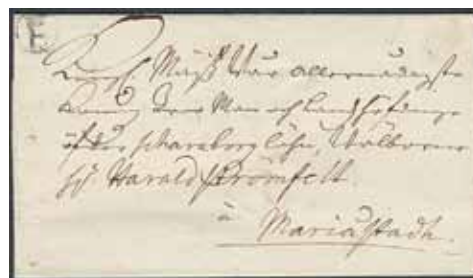 E
Wår allernådigste
Man och Landshöfdinge
öfver Skaraborg Lähn, Wälborne
Harald Strömfelt
à
Mariæstadh.